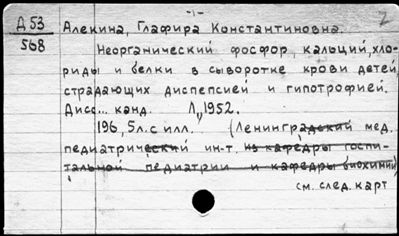 -1- 2
Д 53 Алекина, Глафира Константиновна.
568 Неорганический фосфор, кальций, хло-
риды и белки в сыворотке крови детей,
страдающих диспепсией и гипотрофией.
Дисс... канд. Л., 1952.
196, 5 л. с илл. (Ленинградский мед.
педиатрический ин-т. из кафедры госпи-
тальной педиатрии и кафедры биохимии)
см. след. карт